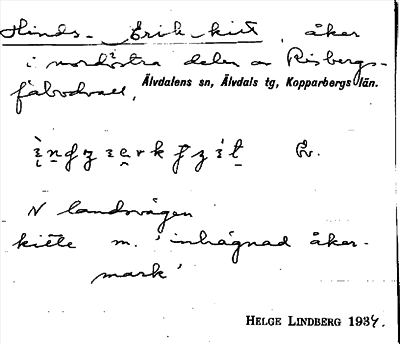 Hinds-Erik-kist, åker
i nordöstra delen av Risbergs-
fäbodvall, Älvdalens sn, Älvdals tg, Kopparbergs län.
N landsvägen
m. 'inhägnad åker-
mark'
HELGE LINDBERG 1934.